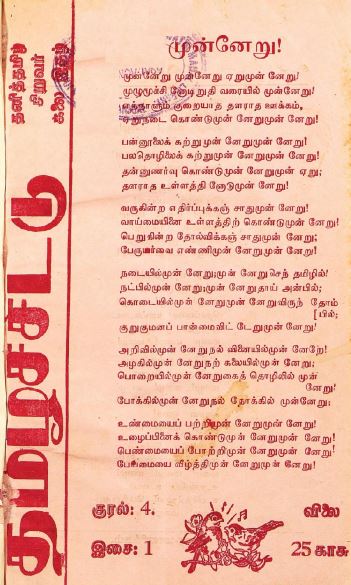 தனித்தமிழ்
சிறுவர்
கலை இதழ்
தமிழ்ச்சிட்டு
முன்னேறு!
முன்னேறு முன்னேறு ஏறுமுன் னேறு!
முழுமூச்சி னோடிறுதி வரையில் முன்னேறு!
எந்நாளும் குறையாத தளராத ஊக்கம்,
ஏறுநடை கொண்டுமுன் னேறுமுன் னேறு!
பன்னூலைக் கற்றுமுன் னேறுமுன் னேறு!
பலதொழிலைக் கற்றுமுன் னேறுமுன் னேறு!
தன்னுணர்வு கொண்டுமுன் னேறுமுன் னேறு ஏறு;
தளராத உள்ளத்தி னோடுமுன் னேறு!
வருகின்ற எதிர்ப்புக்கஞ் சாதுமுன் னேறு!
வாய்மையினை உள்ளத்திற் கொண்டுமுன் னேறு!
பெறுகின்ற தோல்விக்கஞ் சாதுமுன் னேறு;
பேருயர்வை எண்ணிமுன் னேறுமுன் னேறு!
நடையில்முன் னேறு;முன் னேறு செந் தமிழில்!
நட்பில்முன் னேறு;முன் னேறுதாய் அன்பில்;
கொடையில்முன் னேறுமுன் னேறுவிருந் தோம்
[பில்;
குறுகுமனப் பான்மைவிட் டேறுமுன் னேறு!
அறிவில்முன் னேறுநல் வினையில்முன் னேறே!
அழகில்முன் னேறுநற் கலையில்முன் னேறு;
பொறையில்முன் னேறுகைத் தொழிலில் முன்
னேறு!
போக்கில்முன் னேறுநல் நோக்கில் முன்னேறு;
உண்மையைப் பற்றிமுன் னேறுமுன் னேறு!
உழைப்பினைக் கொண்டுமுன் னேறுமுன் னேறு!
பெண்மையைப் போற்றிமுன் னேறுமுன் னேறு!
பேதைமையை வீழ்த்திமுன் னேறுமுன் னேறு!
குரல்: 4.
விலை
இசை: 1
25 காசு